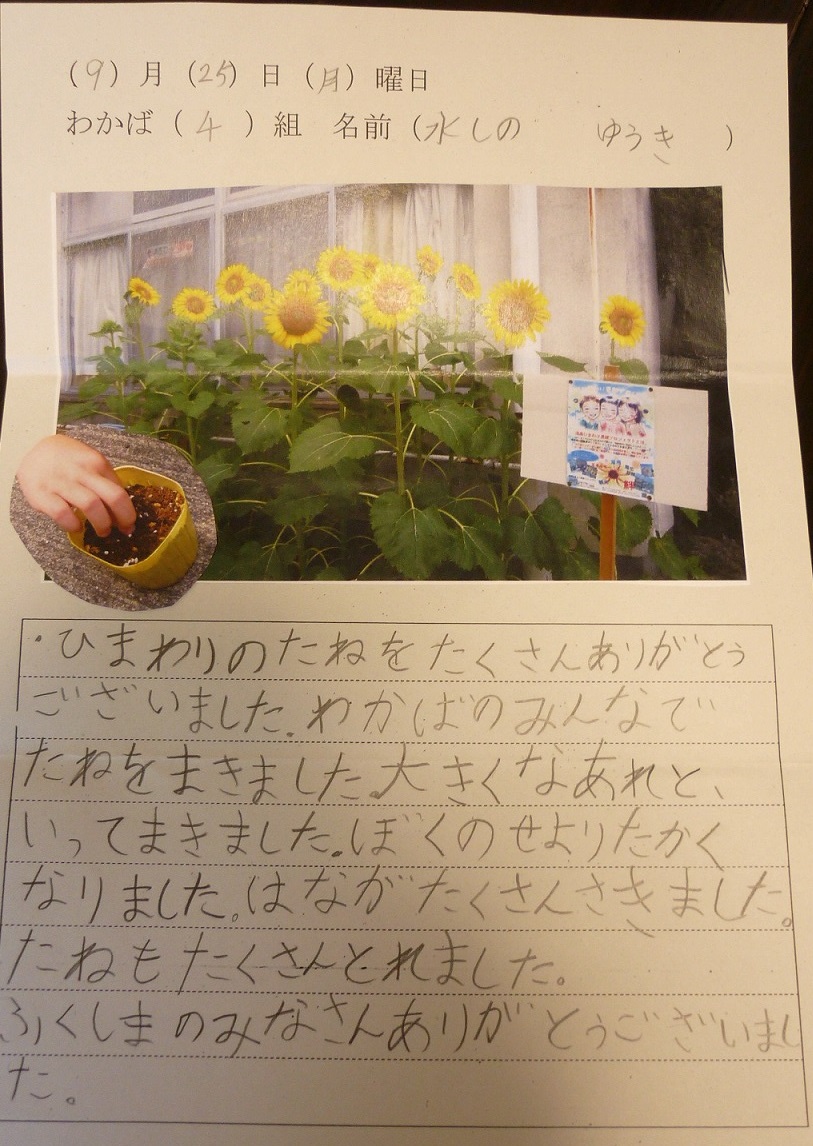 (9)月(25)日(月)曜日
わかば(4)組 名前(水しの ゆうき)
・ひまわりのたねをたくさんありがとう
ございました。わかばのみんなで
たねをまきました。大きくなあれと、
いってまきました。ぼくのせよりたかく
なりました。はながたくさんさきました。
たねもたくさんとれました。
ふくしまのみなさんありがとうございまし
た。